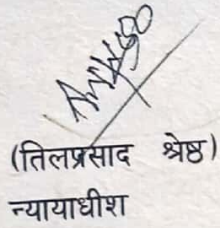 (तिलप्रसाद श्रेष्ठ)
न्यायाधीश